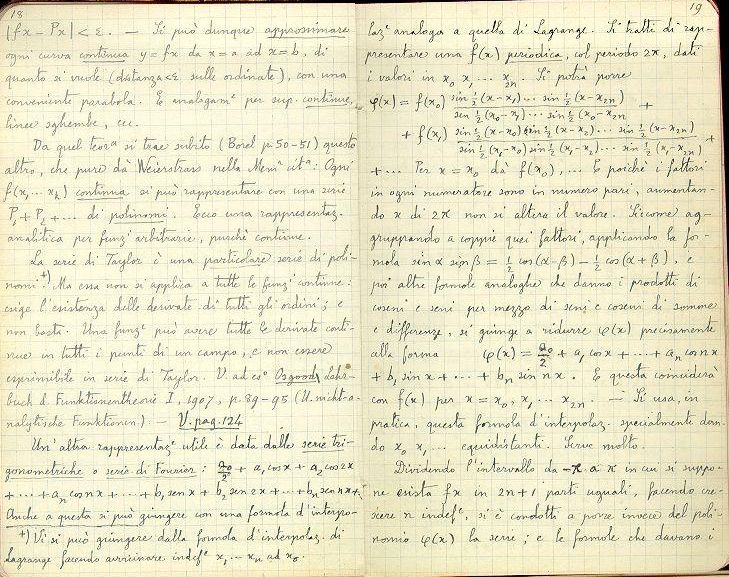 18
|fx – Px| < ε. — Si può dunque approssimare
ogni curva continua y = fx da x = a ad x = b, di
quanto si vuole (distanza < ε sulle ordinate), con una
conveniente parabola. E analogamᵉ per sup. continue,
linee sghembe, ecc.
Da quel teorᵃ si trae subito (Borel p. 50-51) questo
altro, che pure dà Weierstrass nella Memᵃ citᵃ: Ogni
f(x₁ ... xₖ) continua si può rappresentare con una serie
P₁ + P₂ + ... di polinomi. Ecco una rappresentaz.
analitica per funzⁱ arbitrarie, purchè continue.
La serie di Taylor è una particolare serie di poli-
nomi.⁺⁾ Ma essa non si applica a tutte le funzⁱ continue:
esige l'esistenza delle derivate di tutti gli ordini; e
non basta. Una funzᵉ può avere tutte le derivate conti-
nue in tutti i punti di un campo, e non essere
esprimibile in serie di Taylor. V. ad esᵒ Osgood, Lehr-
buch d. Funktionentheorie I, 1907, p. 89-95 (U. nicht-a-
nalytische Funktionen). — V. pag. 124
Un'altra rappresentazᵉ utile è data dalle serie tri-
gonometriche o serie di Fourier: a₀/2 + a₁ cos x + a₂ cos 2x
+ ... + aₙ cos nx + ... + b₁ sen x + b₂ sen 2x + ... + bₙ sen nx + ..
Anche a questa si può giungere con una formola d'interpo-
⁺⁾ Vi si può giungere dalla formola d'interpolaz. di
Lagrange facendo avvicinare indefᵉ x₁ ... xₙ ad x₀.
19
lazᵉ analoga a quella di Lagrange. Si tratti di rap-
presentare una f(x) periodica, col periodo 2π, dati
i valori in x₀ x₁ ... x₂ₙ. Si potrà porre
φ(x) = f(x₀) sin ½(x-x₁) ... sin ½(x-x₂ₙ) / sin ½(x₀-x₁) ... sin ½(x₀-x₂ₙ) +
+ f(x₁) sin ½(x-x₀) sin ½(x-x₂) ... sin ½(x-x₂ₙ) / sin ½(x₁-x₀) sin ½(x₁-x₂) ... sin ½(x₁-x₂ₙ) +
+ ... Per x = x₀ dà f(x₀), ... E poichè i fattori
in ogni numeratore sono in numero pari, aumentan-
do x di 2π non si altera il valore. Siccome ag-
gruppando a coppie quei fattori, applicando la for-
mola sin α sin β = ½ cos(α-β) - ½ cos(α+β), e
poi altre formole analoghe che danno i prodotti di
coseni e seni per mezzo di seni e coseni di somme
e differenze, si giunge a ridurre φ(x) precisamente
alla forma φ(x) = a₀/2 + a₁ cos x + ... + aₙ cos nx
+ b₁ sin x + ... + bₙ sin nx. E questa coinciderà
con f(x) per x = x₀, x₁ ... x₂ₙ. — Si usa, in
pratica, questa formola d'interpolaz. specialmente dan-
do x₀ x₁ ... equidistanti. Serve molto.
Dividendo l'intervallo da -π a π in cui si suppo-
ne esista fx in 2n+1 parti uguali, facendo cre-
scere n indefᵉ, si è condotti a porre invece del poli-
nomio φ(x) la serie; e le formole che davano i